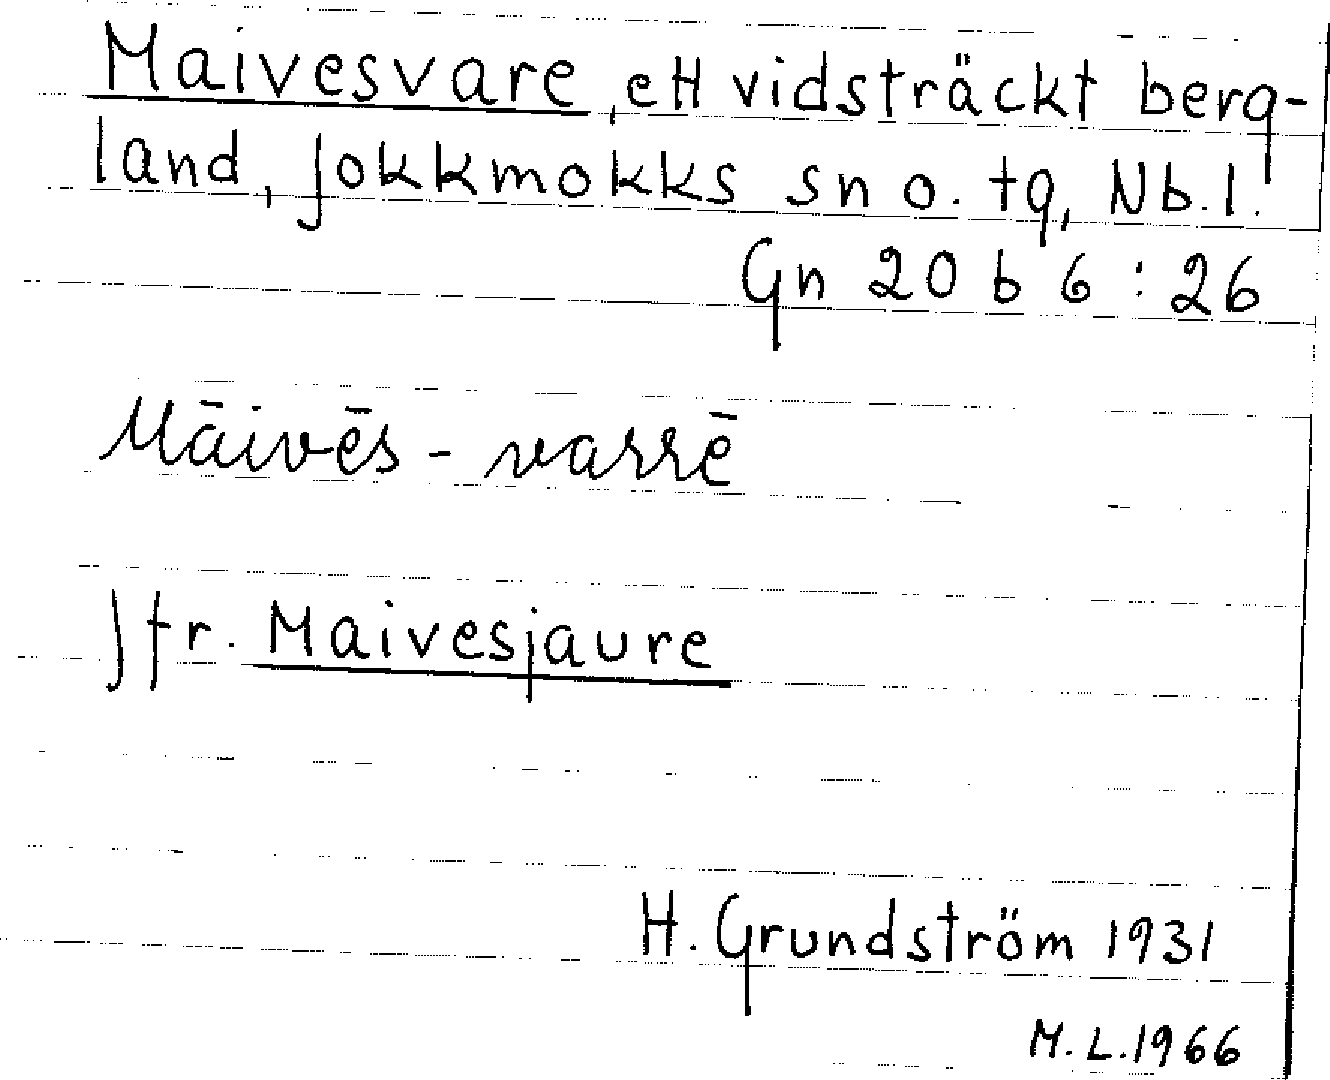 Maivesvare, ett vidsträckt berg-
land, Jokkmokks sn o. tg, Nb. l.
Gn 20 b 6 : 26
Māivēs - varrē
Jfr. Maivesjaure
H. Grundström 1931
M. L. 1966